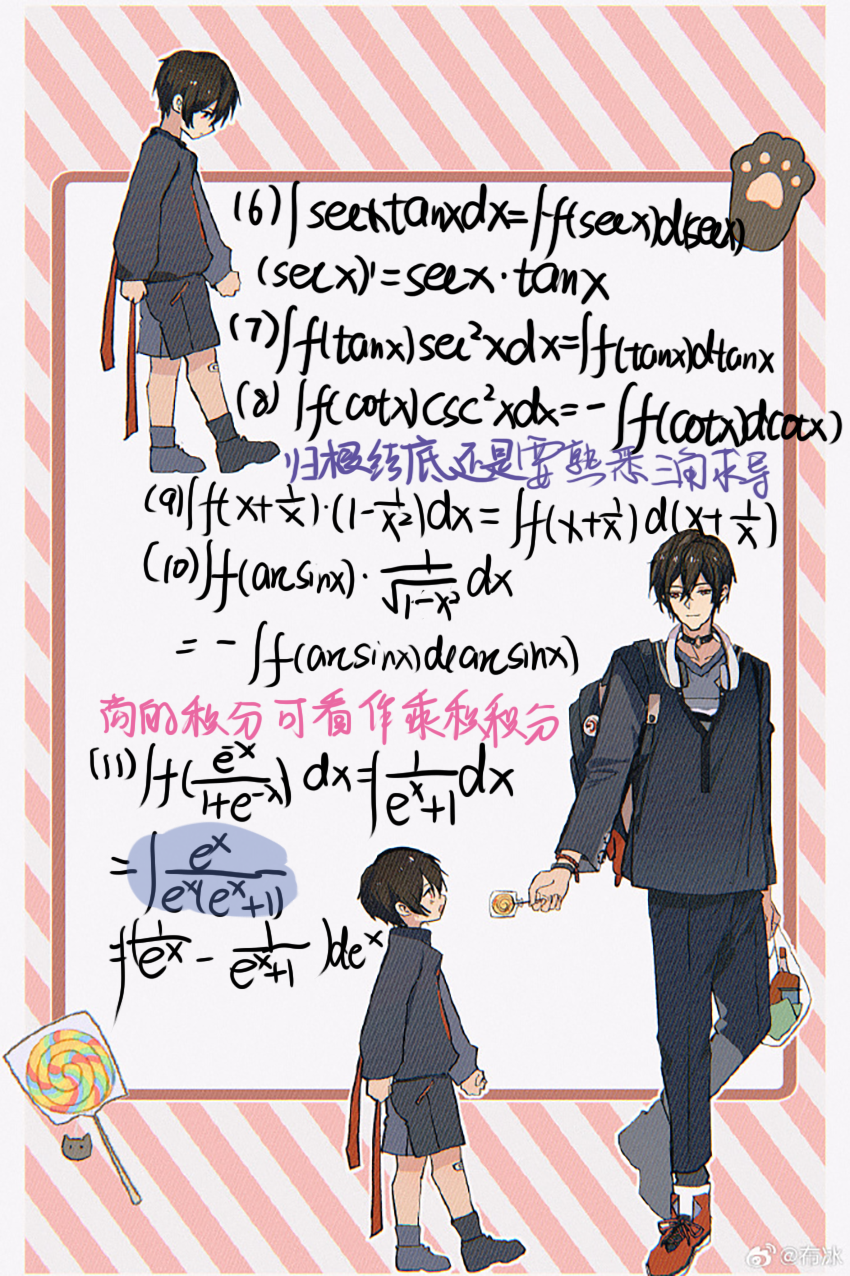 (6) ∫ secx·tanxdx=∫f(secx)d(secx)
(secx)'=secx·tanx
(7) ∫f(tanx)sec²xdx=∫f(tanx)dtanx
(8) ∫f(cotx)csc²xdx=-∫f(cotx)d(cotx)
归根结底还是要熟悉三角求导
(9) ∫f(x+1/x)·(1-1/x²)dx=∫f(x+1/x)d(x+1/x)
(10) ∫f(arcsinx)·1/√(1-x²) dx
=-∫f(arcsinx)d(arcsinx)
商的积分可看作乘积积分
(11) ∫f(e⁻ˣ/(1+e⁻ˣ)) dx=∫1/(eˣ+1) dx
=∫eˣ/(eˣ(eˣ+1))
=∫(1/eˣ-1/(eˣ+1))deˣ
@布冰